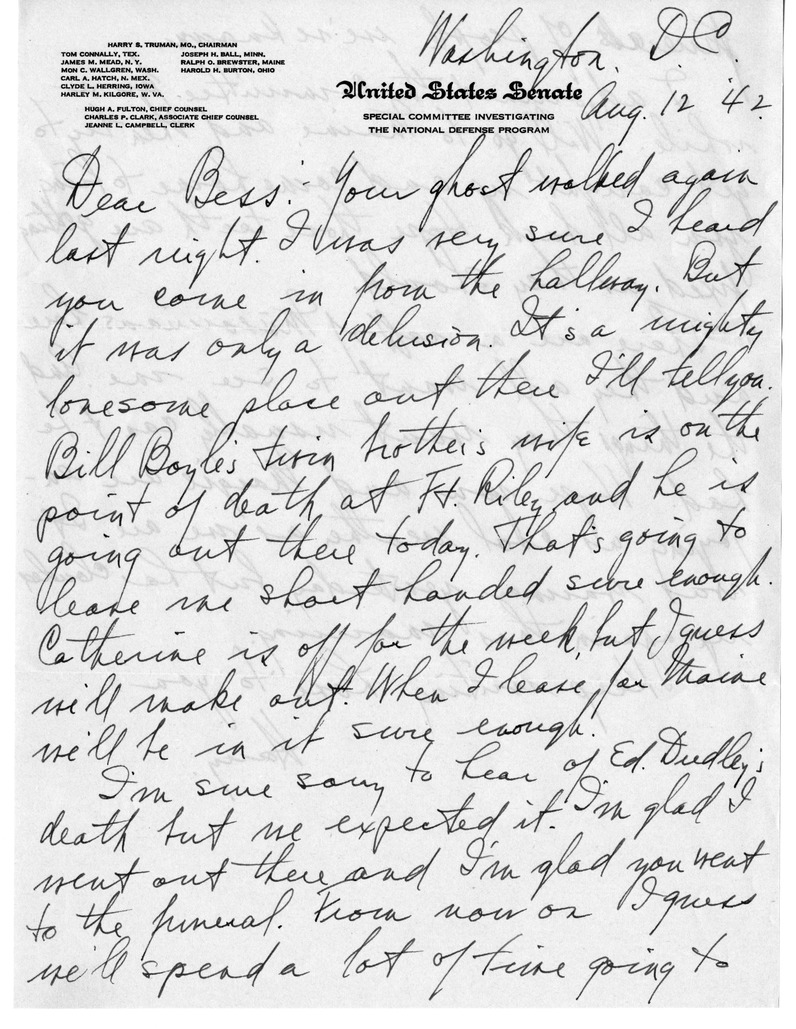 HARRY S. TRUMAN, MO., CHAIRMAN
TOM CONNALLY, TEX. JOSEPH H. BALL, MINN.
JAMES M. MEAD, N. Y. RALPH O. BREWSTER, MAINE
MON C. WALLGREN, WASH. HAROLD H. BURTON, OHIO
CARL A. HATCH, N. MEX.
CLYDE L. HERRING, IOWA
HARLEY M. KILGORE, W. VA.
HUGH A. FULTON, CHIEF COUNSEL
CHARLES P. CLARK, ASSOCIATE CHIEF COUNSEL
JEANNE L. CAMPBELL, CLERK
Washington. D.C.
United States Senate
SPECIAL COMMITTEE INVESTIGATING
THE NATIONAL DEFENSE PROGRAM
Aug. 12 '42
Dear Bess:- Your ghost walked again
last night. I was very sure I heard
you come in from the hallway. But
it was only a delusion. It's a mighty
lonesome place out there I'll tell you.
Bill Boyle's twin brother's wife is on the
point of death at Ft. Riley and he is
going out there today. That's going to
leave me short handed sure enough.
Catherine is off for the week, but I guess
we'll make out. When I leave for Maine
we'll be in it sure enough.
I'm sure sorry to hear of Ed. Dudley's
death but we expected it. I'm glad I
went out there and I'm glad you went
to the funeral. From now on I guess
we'll spend a lot of time going to